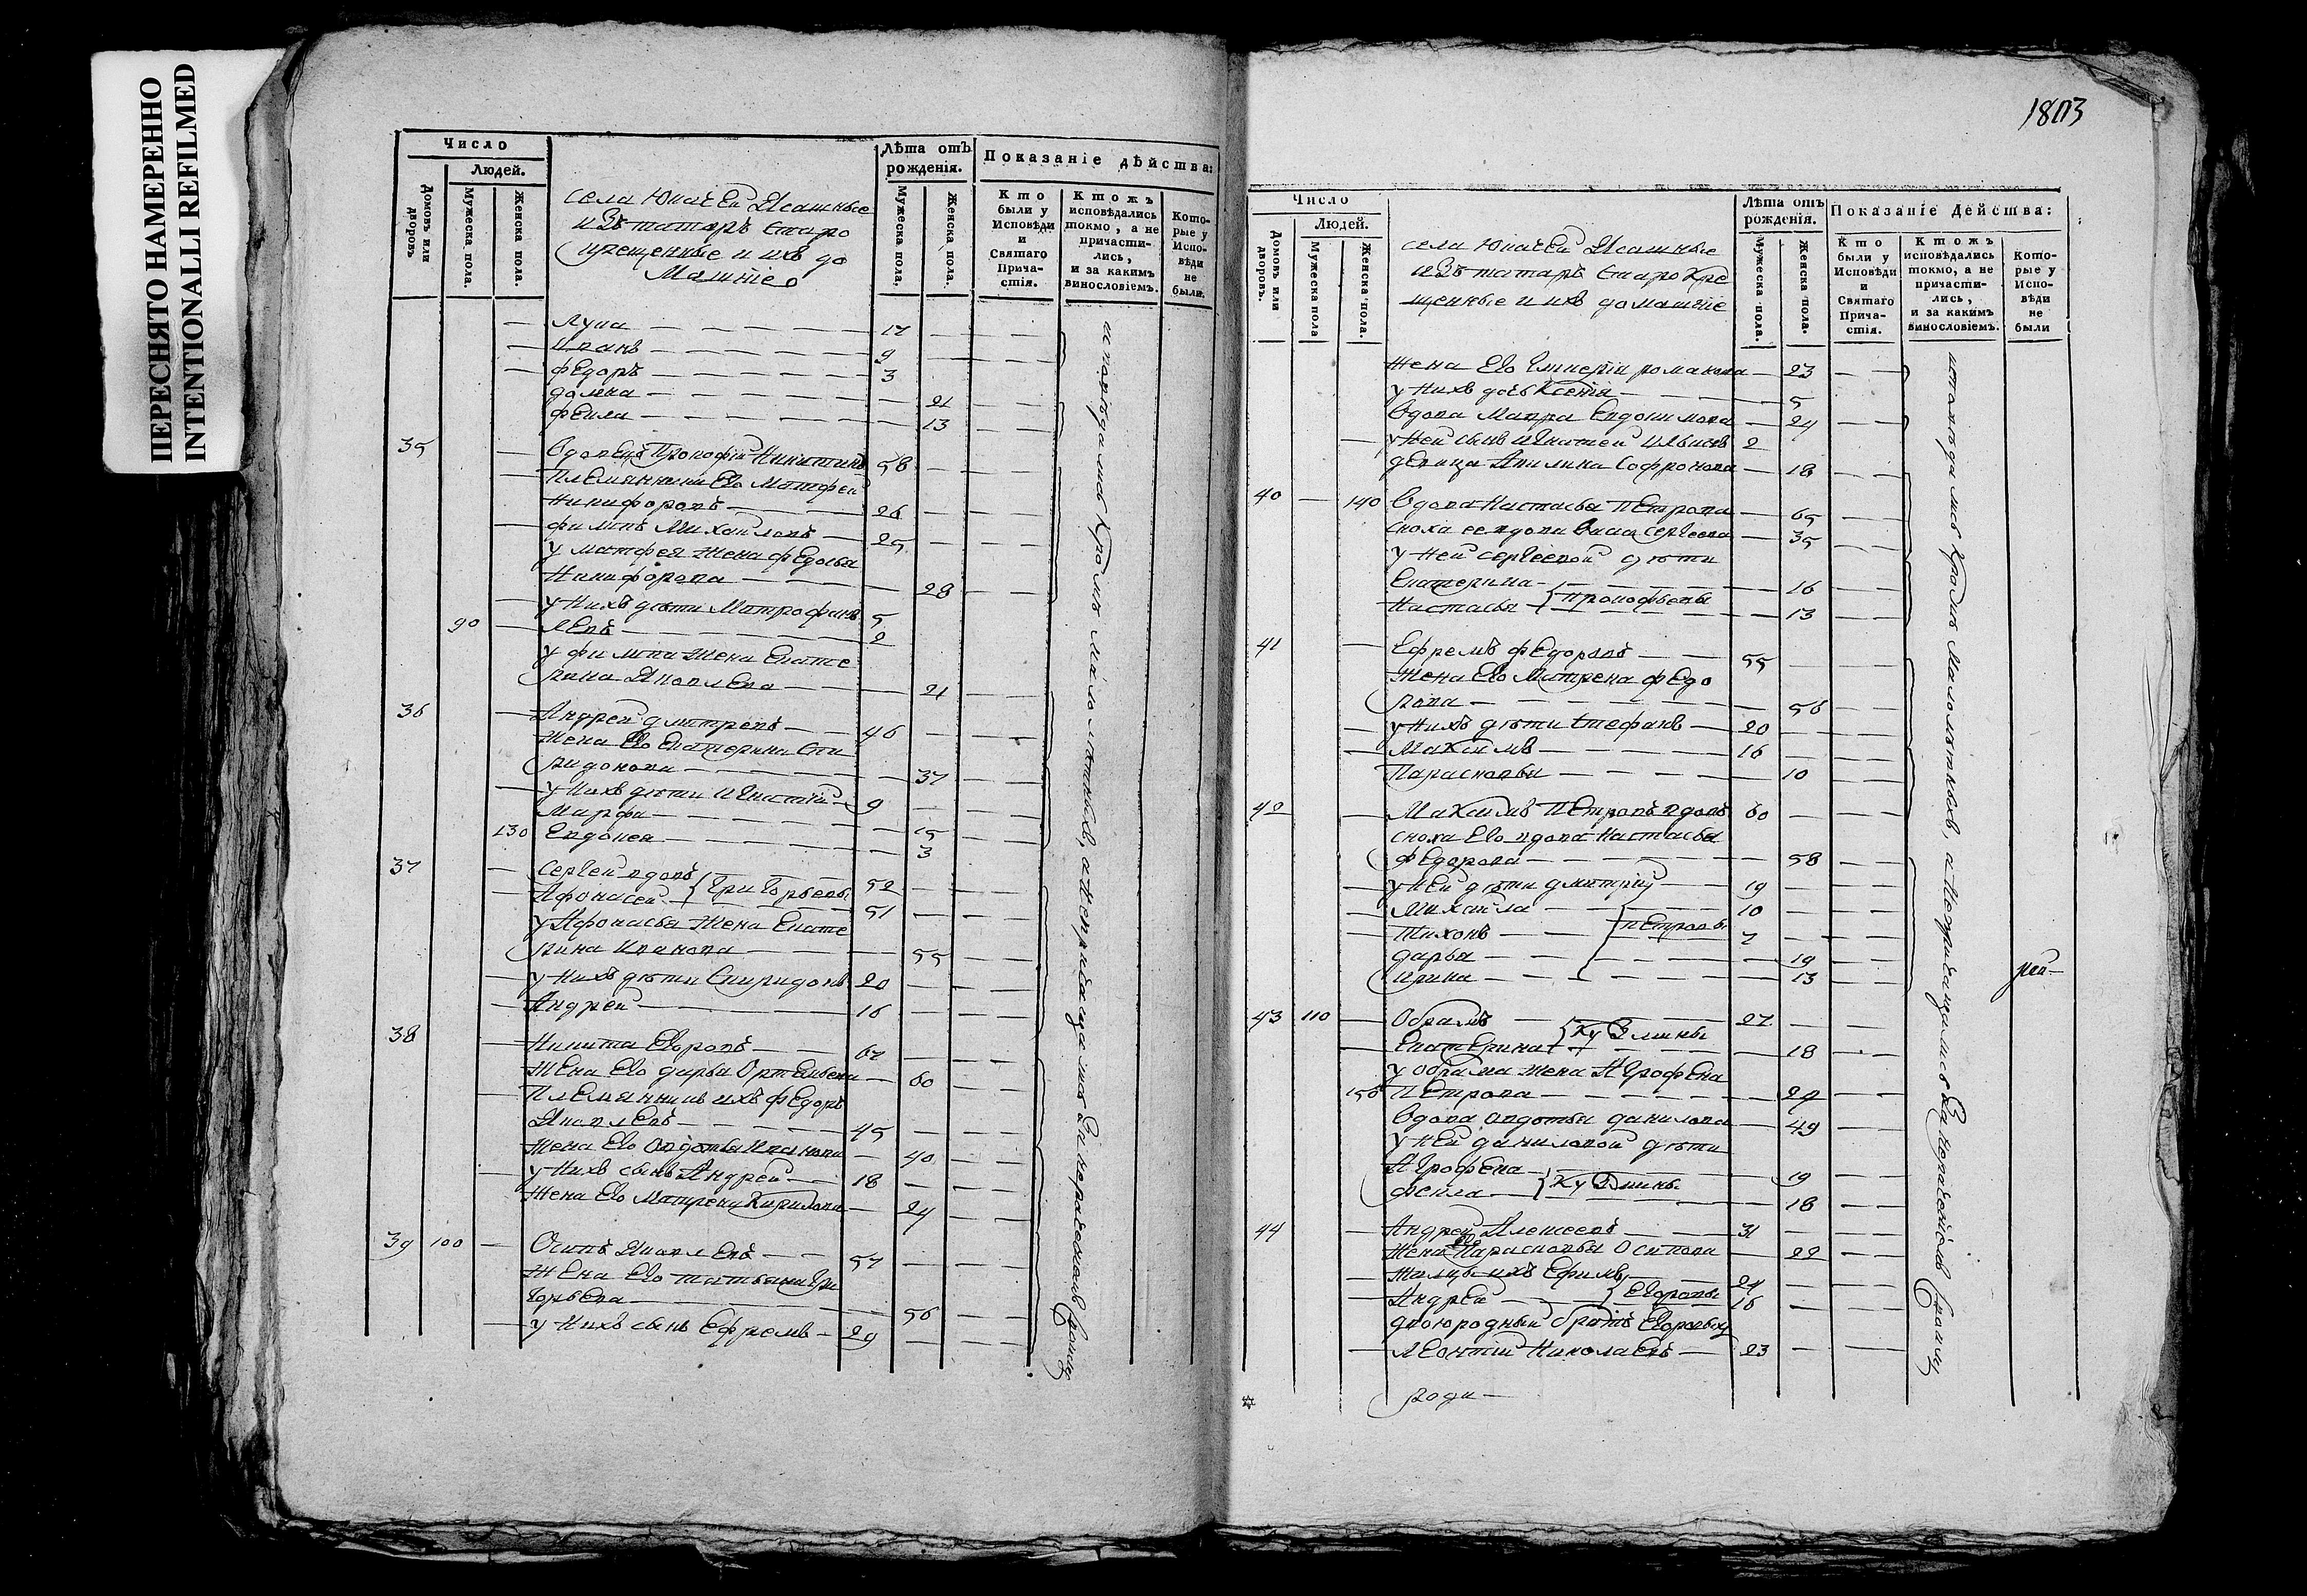 ПЕРЕСНЯТО НАМЕРЕННО
INTENTIONALLI REFILMED
Число
Людей.
Домовъ или дворовъ.
Мужеска пола.
Женска пола.
села Юкачей Ясашные
изъ татаръ старо
крещенные и ихъ до
машніе
Лѣта отъ рожденія.
Мужеска пола,
Женска пола.
Показаніе дѣйства:
Кто были у Исповѣди и Святаго Причастія.
Ктожъ исповѣдались токмо, а не причастились, и за какимъ винословіемъ.
Которые у Исповѣди не были.
Лука 17
Иванъ 9
Федоръ 3
домна 21
фекла 13
35 Вдовецъ Прокофій Никитинъ 58
Племянники Его Матфей
Никифоровъ 26
филипъ Михайловъ 25
у матфея жена федосья
Никифорова 28
у Нихъ дѣти Митрофанъ 5
90 Левъ 2
у филипа жена Екате
рина Яковлева 21
36 Андрей дмитревъ 46
жена Его Екатерина Спи
ридонова 37
у Нихъ дѣти Игнатій 9
Марфа 15
130 Евдокея 3
37 Сергей вдовъ 52
Афонасей Григорьевы 51
у Афонасья жена Екате
рина Иванова 55
у Нихъ дѣти Спиридонъ 20
Андрей 16
38 Никита Егоровъ 67
жена Его дарья Артемьева 60
Племянникъ ихъ федоръ
Яковлевъ 45
жена Его Авдотья Иванова 40
у Нихъ сынъ Андрей 18
жена Его Матрена Кирилова 24
39 100 Осипъ Яковлевъ 57
жена Его татьяна Гри
горьева 56
у Нихъ сынъ Ефремъ 29
исповѣдались Кромѣ малолѣтныхъ, а Непричащались За нераченіемъ
1803
Число
Людей.
Домовъ или дворовъ.
Мужеска пола
Женска пола.
села Юкачей Ясашные
изъ татаръ старо Кре
щенные и ихъ домашніе
Лѣта отъ рожденія.
Мужеска пола.
Женска пола.
Показаніе Действа:
Кто были у Исповѣди и Святаго Причастія.
Ктожъ исповѣдались токмо, а не причастились, и за какимъ винословіемъ.
Которые у Исповѣди не были
жена Его Гликерія романова 23
у Нихъ дочь Ксенія 5
Вдова Мавра Евдокимова 24
у Ней сынъ Игнатей 2
девица Акилина Софронова 18
40 140 Вдова Настасья Петрова 65
сноха ее вдова Васса сергеева 35
у Ней сергеевой дѣти
Екатерина 16
Настасья Прокофьевы 13
41 Ефремъ федоровъ 55
жена Его Матрена федо
рова 56
у Нихъ дѣти Стефанъ 20
Максимъ 16
Парасковья 10
42 Максимъ Петровъ вдовъ 60
сноха Его вдова Настасья
федорова 58
у Ней дѣти дмитрій 19
Михайла 10
Тихонъ Петровы 7
дарья 19
ирина 13
43 110 Обрамъ 27
Екатерина Кузмины 18
у обрама жена Агрофена
150 Петрова 29
Вдова Авдотья данилова 49
у Ней даниловой дѣти
Агрофена 19
фекла Кузмины 18
44 Андрей Алексеевъ 31
жена Его Парасковья Осипова 22
жильцы ихъ Ефимъ 24
Андрей Егоровы 16
двоюродный братъ Егоровыхъ
Леонтій Николаевъ 23
исповѣдались Кромѣ Малолѣтныхъ, а Непричащались За нераченіемъ
рей